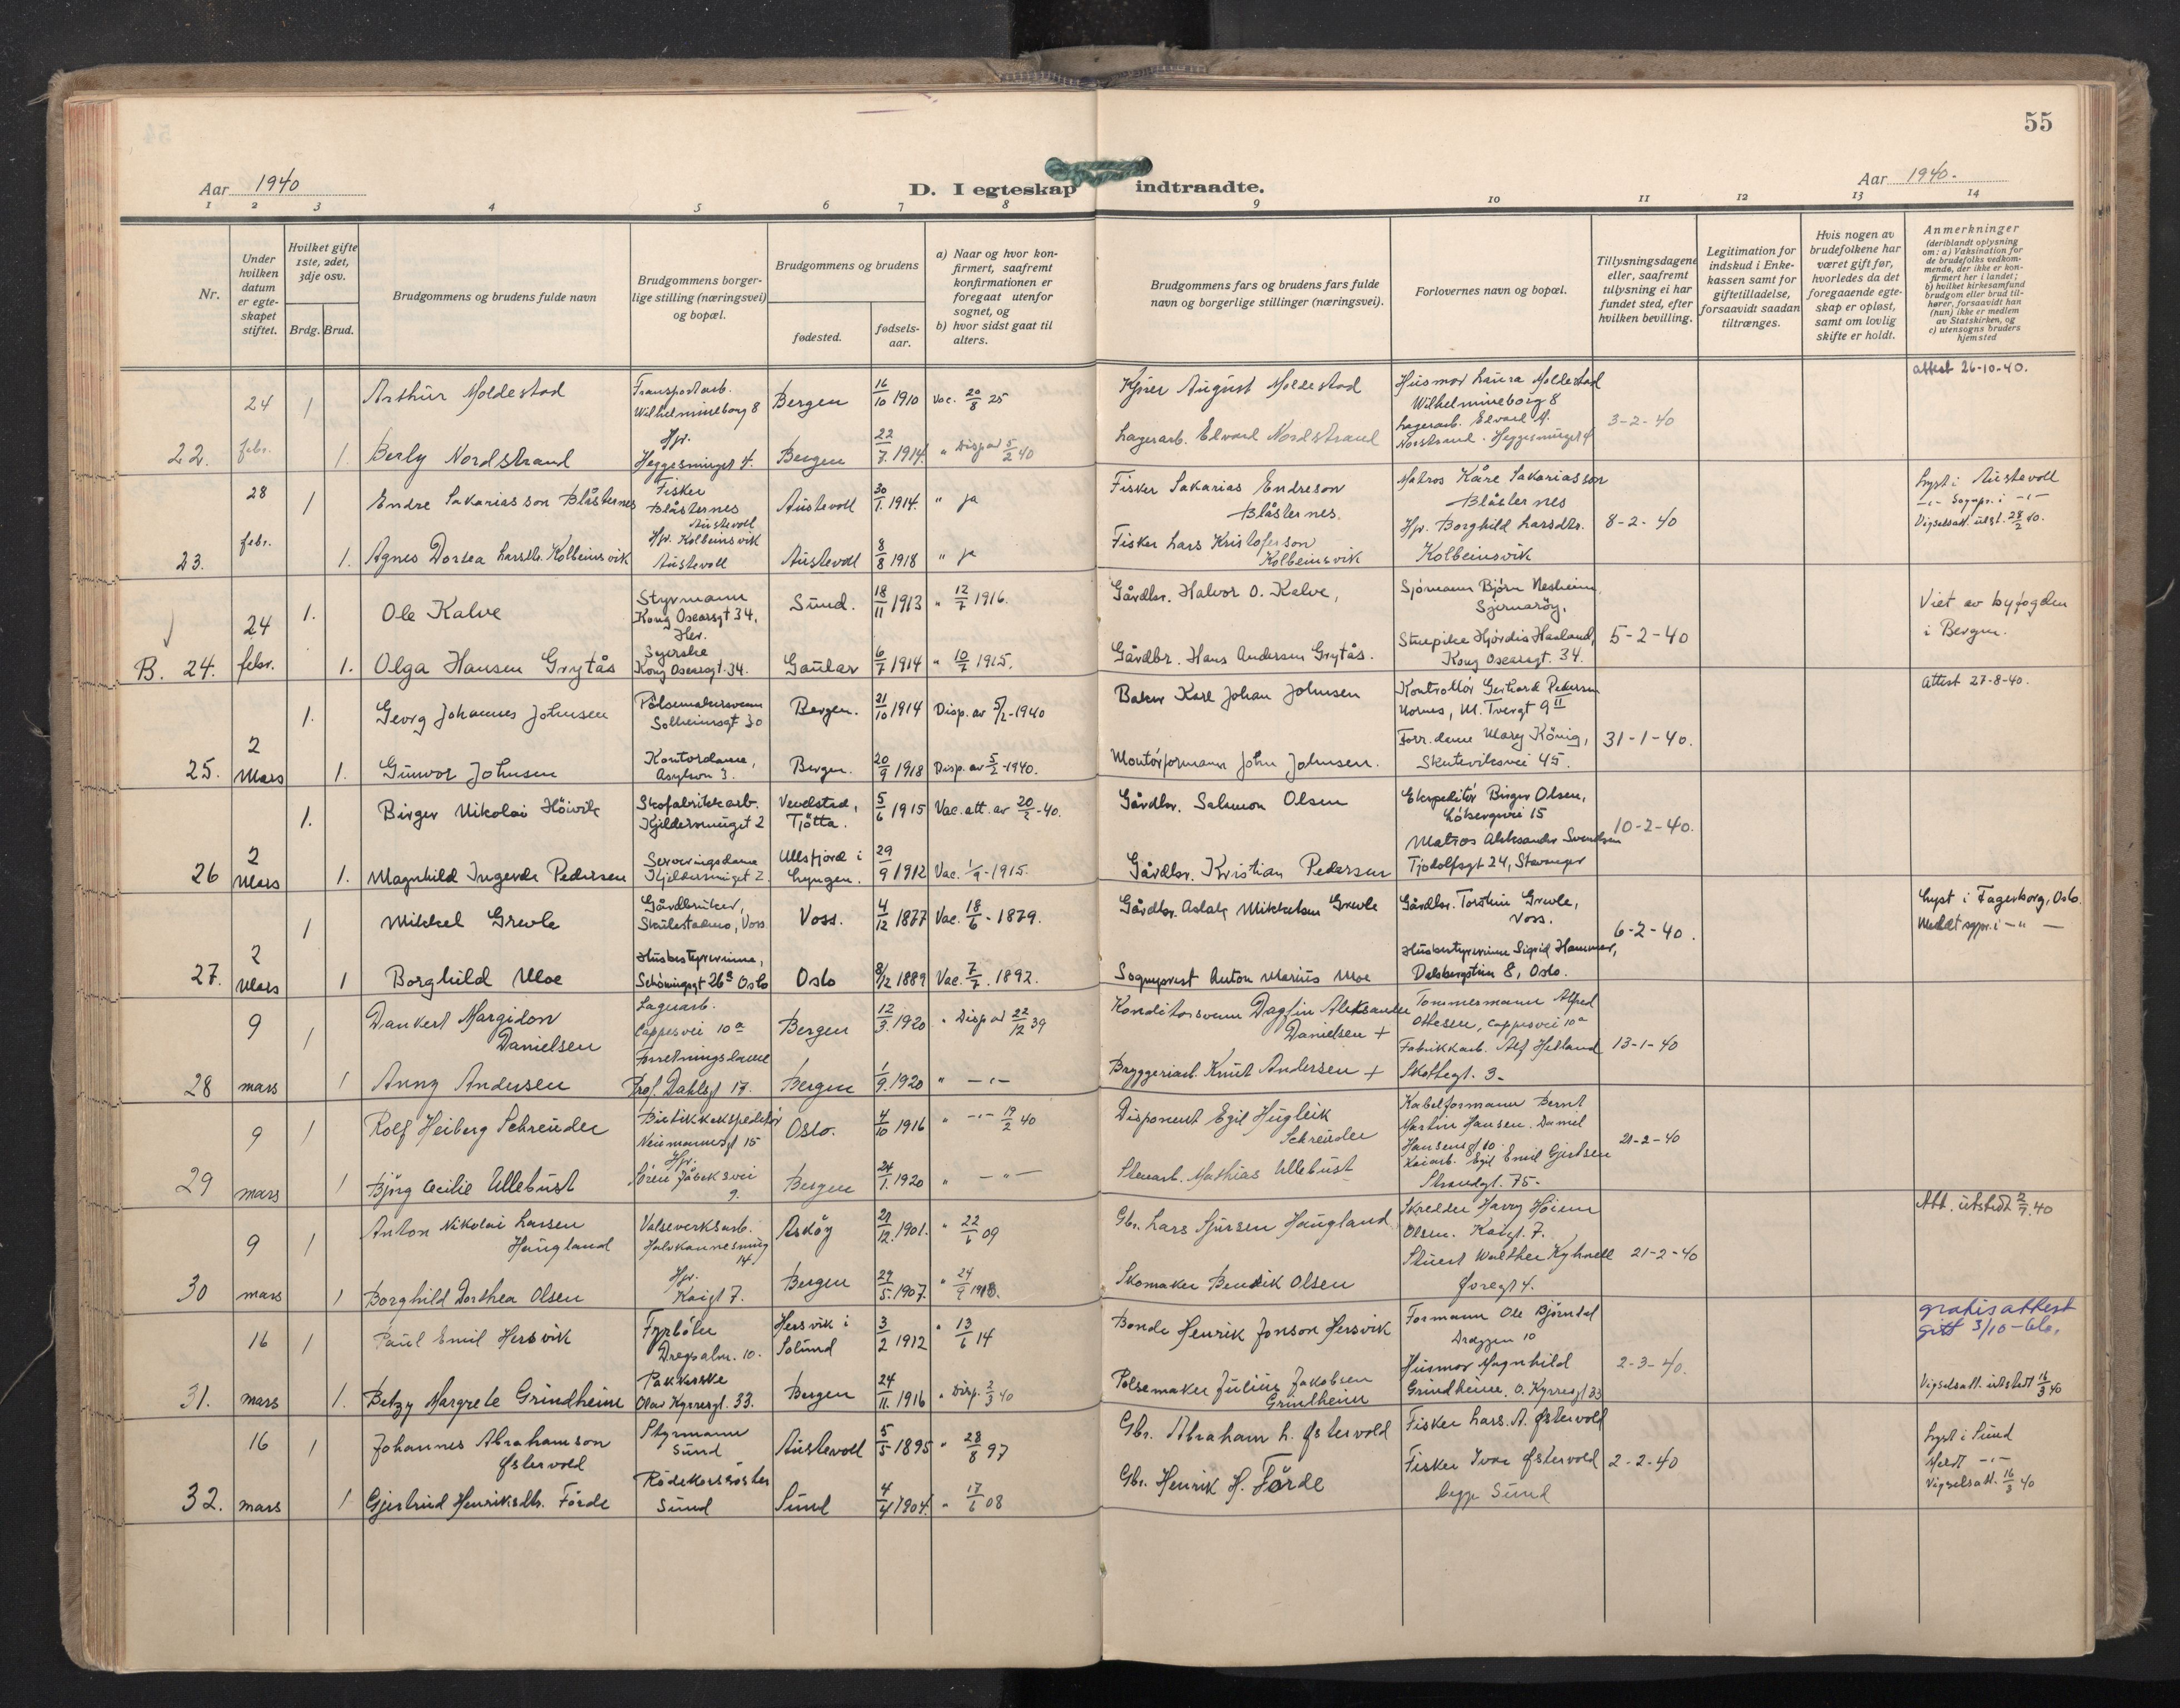 55
Aar 1940
D. I egteskap indtraadte.
Aar 1940.
1 2 3 4 5 6 7 8 9 10 11 12 13 14
Nr.
Under hvilken datum er egte-skapet stiftet.
Hvilket gifte 1ste, 2det, 3dje osv.
Brdg. Brud.
Brudgommens og brudens fulde navn
Brudgommens borger-lige stilling (næringsvei) og bopæl.
Brudgommens og brudens
fødested.
fødsels-aar.
a) Naar og hvor kon-firmert, saafremt konfirmationen er foregaat utenfor sognet, og
b) hvor sidst gaat til alters.
Brudgommens fars og brudens fars fulde navn og borgerlige stillinger (næringsvei).
Forlovernes navn og bopæl.
Tillysningsdagene eller, saafremt tillysning ei har fundet sted, efter hvilken bevilling.
Legitimation for indskud i Enke-kassen samt for giftetilladelse, forsaavidt saadan tiltrænges.
Hvis nogen av brudefolkene har været gift før, hvorledes da det foregaaende egte-skap er opløst, samt om lovlig skifte er holdt.
Anmerkninger
(deriblandt oplysning om: a) Vaksination for de brudefolks vedkom-mende, der ikke er kon-firmert her i landet; b) hvilket kirkesamfund brudgom eller brud til-hører, forsaavidt han (hun) ikke er medlem av Statskirken, og c) utensogns bruders hjemsted
24 1 Arthur Moldestad Transportarb. Wilhelmineborg 8 Bergen 16/10 1910 Vac. 20/8 25 August Moldestad Husmor Laura Moldestad Wilhelmineborg 8 3-2-40 attest 26-10-40.
22. febr. 1. Berly Nordstrand Hpr. Heggesmuget 4. Bergen 22/7. 1914. " Disp av 5/2 40 Lagerarb. Edvard Nordstrand Lagerarb. Edvard A. Norstrand. Heggesmuget 4
28 1 Endre Sakariasson Blåsternes Fisker Blåsternes Austevoll Austevoll 30/1. 1914. " ja Fisker Sakarias Endreson Blåsternes. Matros Kåre Sakariasson Blåsternes 8-2-40 Lyst i Austevoll
23. febr. 1. Agnes Dortea Larsdtr. Kolbeinsvik Hpr. Kolbeinsvik Austevoll Austevoll 8/8 1918 " ja Fisker Lars Kristoferson Kolbeinsvik Hpr. Borghild Larsdtr. Kolbeinsvik Vigselsatt. utst. 28/2 40.
24 1. Ole Kalve Styrmann Kong Oscarsgt 34, Her. Sund. 18/11 1913 " 12/7 1916. Gårdbr. Halvor O. Kalve, Sjömann Björn Nesheim, Sjernaröy, 5-2-40 Viet av byfogden i Bergen.
B. 24. febr. 1. Olga Hansen Grytås Syerske Kong Oscarsgt. 34. Gaular 6/7 1914 " 10/7 1915. Gårdbr. Hans Andersen Grytås. Stuepike Hjördis Haaland, Kong Oscarsgt. 34.
1. Georg Johannes Johnsen Pölsemakersvenn Solheimsgt 30 Bergen. 31/10 1914 Disp. av 5/2-1940 Baker Karl Johan Johnsen Kontrollör Gerhard Pedersen Hornes, M. Tvergt 9 II 31-1-40. Attest 27-8-40.
25. 2 Mars 1. Gunvor Johnsen Kontordame, Asylvn 3. Bergen. 20/9 1918 Disp. av 5/2-1940. Montörformann John Johnsen. Forr. dame Mary König, Skuteviksvei 45.
1. Birger Nikolai Höivik Skofabrikkarb. Kjeldersmuget 2 Tjötta. 5/6 1915 Vac. att. av 20/2-40. Gårdbr. Salmon Olsen Ekspeditör Birger Olsen, 10-2-40.
26 2 Mars 1. Magnhild Ingerda Pedersen Serveringsdame Kjeldersmuget 2. Ullsfjord i Lyngen. 29/9 1912 Vac. 1/9-1915. Gårdbr. Kristian Pedersen Matros Aleksander Svendsen Tjodolfsgt 24, Stavanger
1 Mikkel Grevle Gårdbruker, Skulestadmo, Voss Voss. 4/12 1877 Vac. 18/6-1879. Gårdbr. Aslak Mikkelsen Grevle Gårdbr. Torstein Grevle, Voss. 6-2-40. Lyst i Fagerborg, Oslo.
27. 2 Mars 1 Borghild Moe Husbestyrerinne, Schöningsgt 26 Oslo Oslo 8/12 1889 Vac. 7/7. 1892. Sogneprest Anton Marius Moe Husbestyrerinne Sigrid Hammer, Dalsbergstien 8, Oslo.
9 1 Dankert Margidon Danielsen Lagerarb. Cappesvei 10a Bergen 12/3. 1920 " Disp av 22/12 39 Konditorsvenn Dagfin Aleksander Danielsen + Tømmermann Alfred Ottesen, Cappesvei 10a 13-1-40
28 mars 1 Anny Andersen Forretningsdame Prof. Dahlsgt 17. Bergen 1/9. 1920 " -"- Bryggeriarb. Knut Andersen + Fabrikkarb. Alf Hetland Skottegt. 3.
9 1 Rolf Heiberg Schreuder Butikkekspeditör Neumannsgt 15 Oslo. 4/10 1916 " -"- 19/2 40 Disponent Egil Hugleik Schreuder Kabelformann Bernt Martin Hansen. Daniel Hansensgt 10. 21-2-40
29 mars 1 Bjørg Cecilie Ullebust Hpr. Sören Jåbeksvei 9. Bergen 24/1. 1920 " -"- Stenarb. Mathias Ullebust Kaiarb. Egil Emil Gjertsen Strandgt. 75.
9 1 Anton Nikolai Larsen Haugland Valseverksarb. Halvkannesmug 14. Askøy 29/12. 1901. " 22/6 09 Gbr. Lars Haugland Skredder Harry Olsen. Kaigt. 7. 21-2-40 Att. utstedt 2/7. 40
30 mars 1 Borghild Dorthea Olsen Hpr. Kaigt 7. Bergen 29/5. 1907. " 24/9 Skomaker Bendik Olsen Stuert Walther Øvregt 4.
16 1 Paul Emil Hersvik Fyrböter Dregsalm. 10. Hersvik i Solund 3/2 1912 " 13/6 14 Bonde Henrik Jonson Hersvik Formann Ole Björndal Dreggen 10 2-3-40. gratis attest gitt 3/10-
31. mars 1. Betzy Margrete Grindheim Pakkerske Olav Kyrresgt. 33. Bergen 24/11. 1916 " Disp. 2/3 40 Pølsemaker Julius Jakobsen Grindheim Husmor Magnhild Grindheim. O. Kyrresgt 33 Vigselsatt. utstedt 16/3 40
16 1 Johannes Abrahamson Østervold Styrmann Sund Austevoll 5/5 1895 " 28/8 97 Gbr. Abraham L. Østervold Fisker Lars. A. Østervold 2-2-40 Lyst i Sund
32. mars 1 Gjertrud Henriksdtr. Förde Rödekorssöster Sund Sund 4/4 1904. " 17/6 08 Gbr. Henrik H. Förde Fisker Ivar Østervold begge Sund Meldt -"- Vigselsatt. 16/3 40